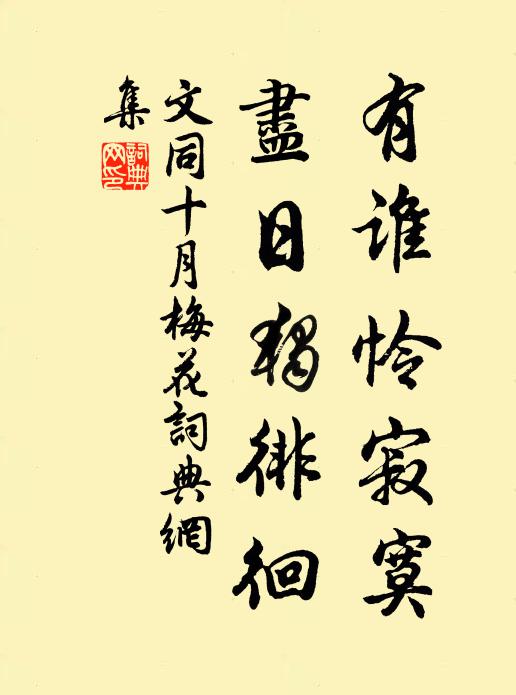 有誰怜寂寞
盡日獨徘徊
文同十月梅花詞典網
集
詞典
网印